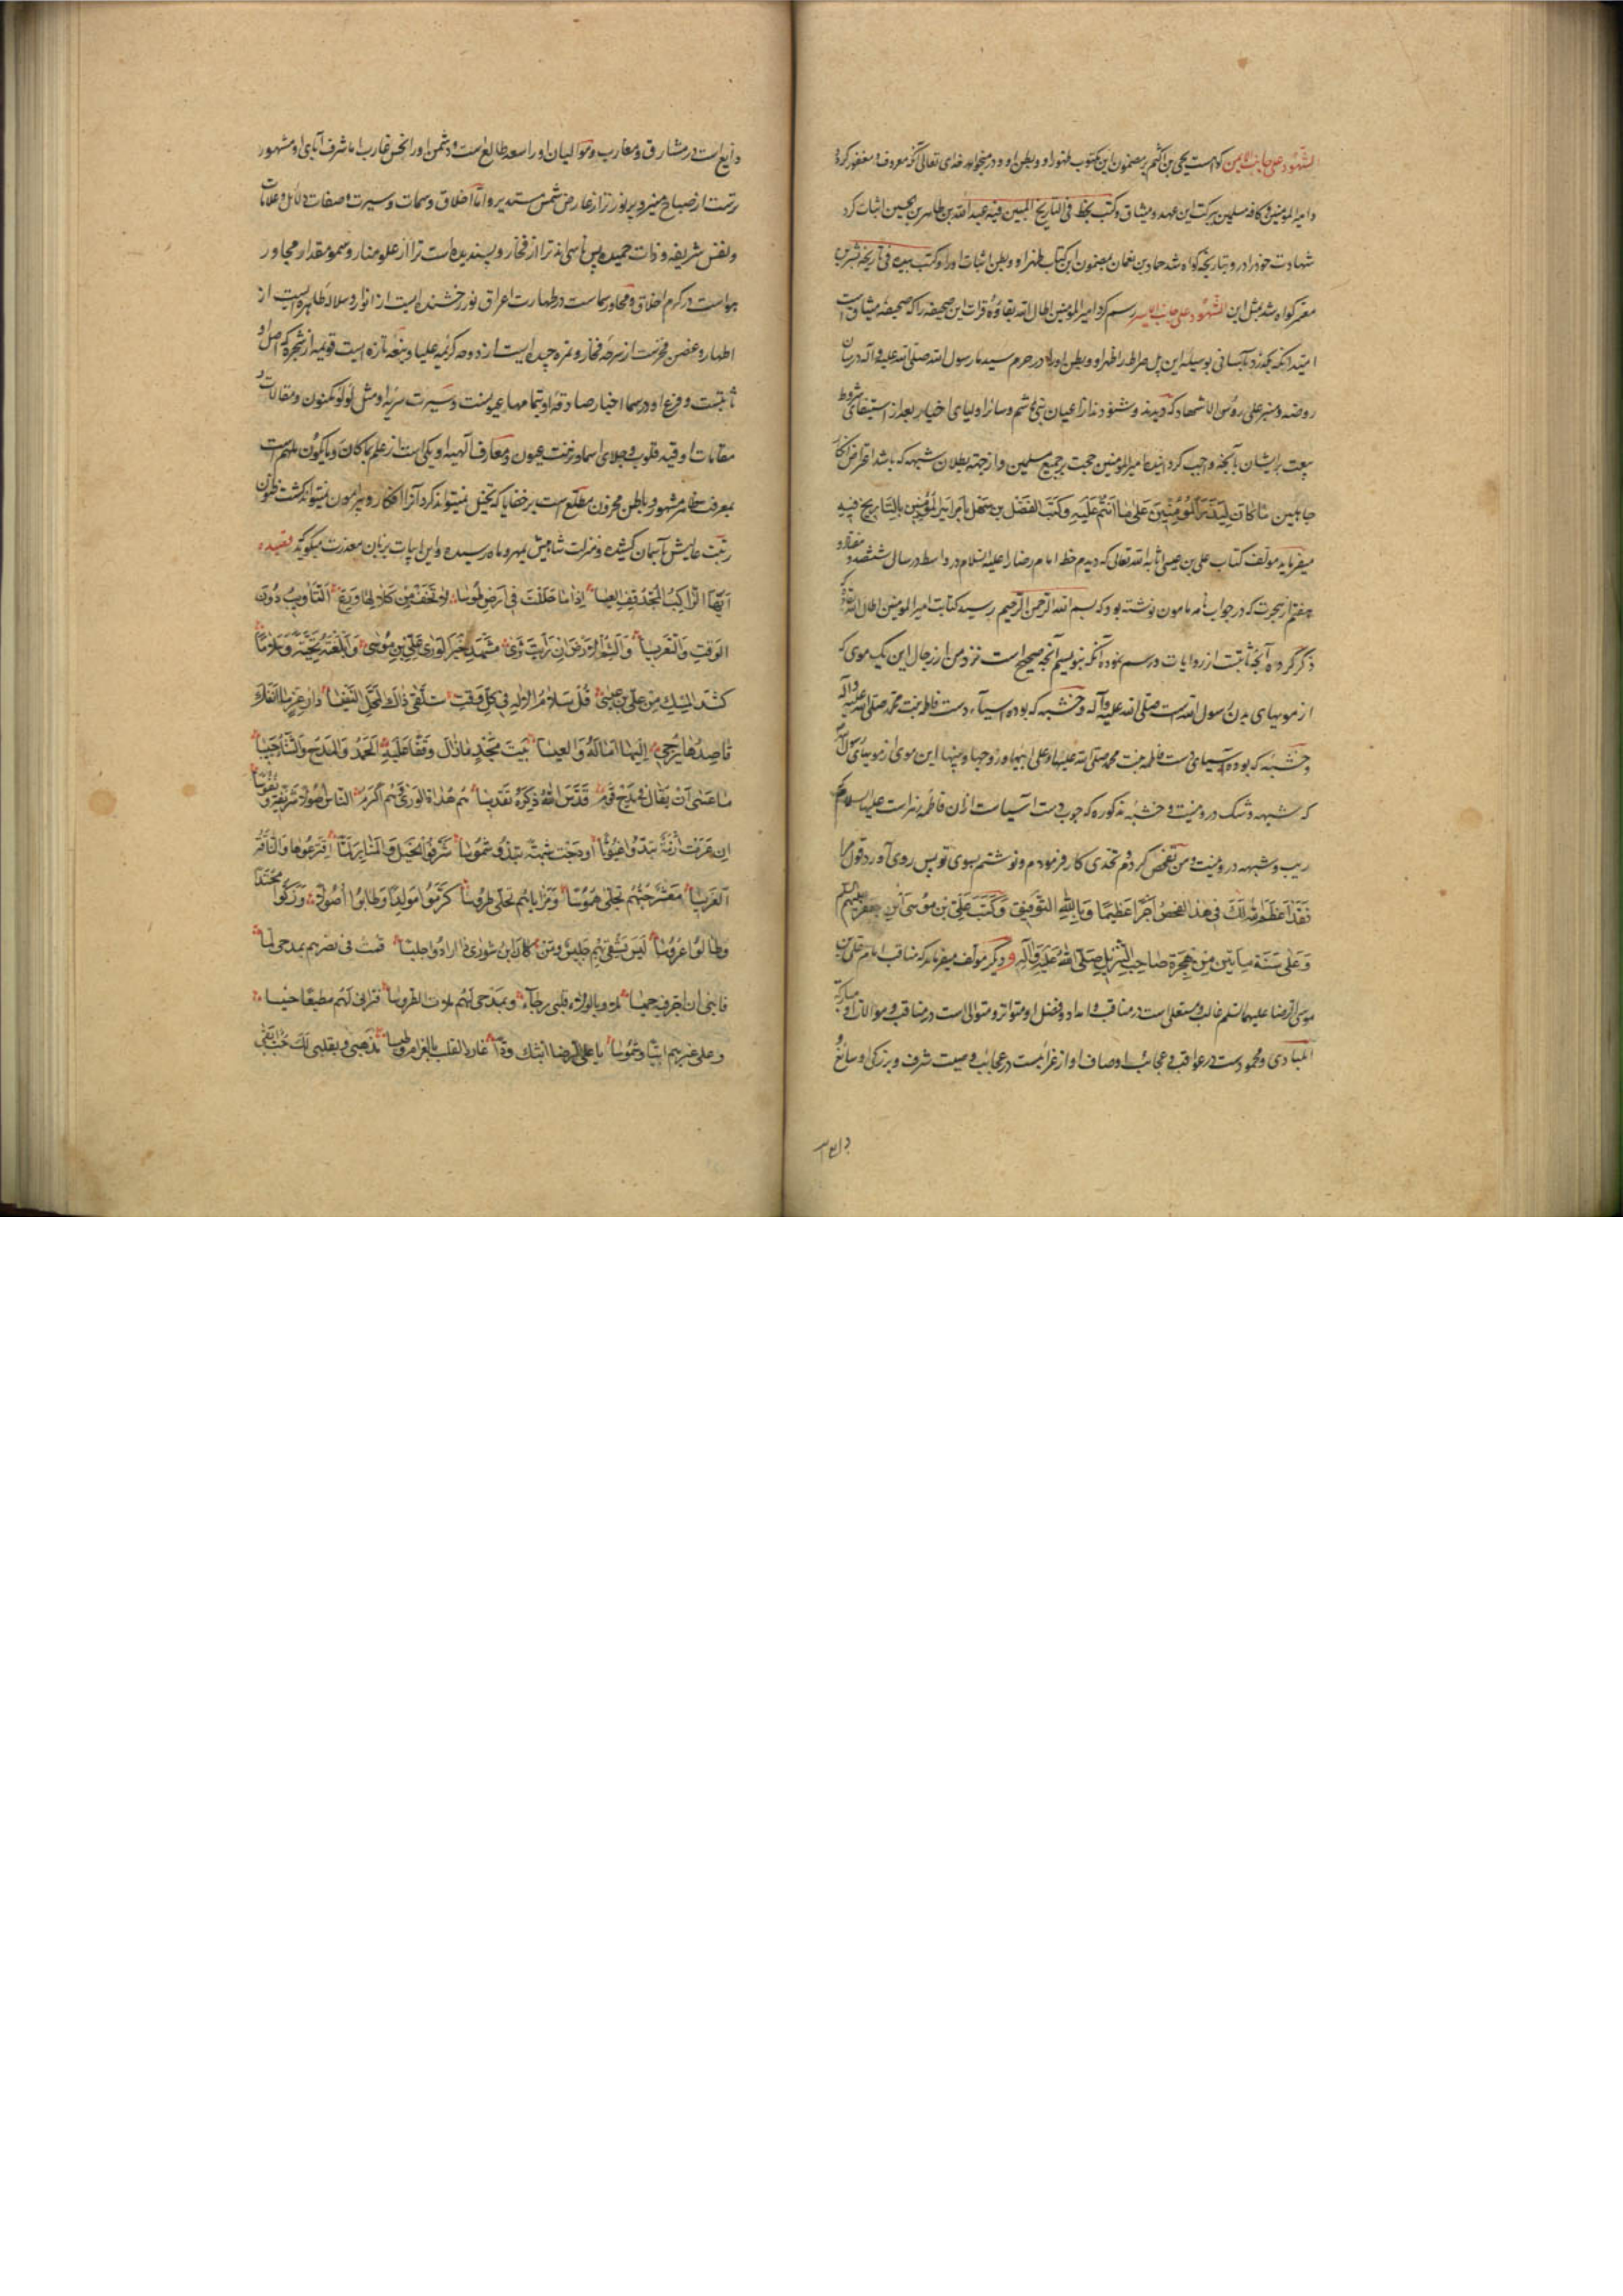 الشهود علی جانب الایمن گواهست یحیی بن اکثم بر مضمون این مکتوب ظهر او و بطن او و در میخواهد خدای تعالی که معروف
و امیر المومنین و کافه مسلمین برکت این عهد و میثاق و کتب بخطه فی التاریخ المبین فیه عبدالله بن طاهر بن حسین اثبات کرد
شهادت خود را درو بتاریخه گواه شد حماد بن نعمان بمضمون این کتاب ظهر او و بطن اثبات او را و کتب بیده فی تاریخه بشر بن
معتمر گواه شد بمثل این الشهود علی جانب الایسر رسم کرد امیر المومنین اطال الله بقاؤه قرات این صحیفه را که صحیفه میثاق است
امید آنکه بگذرد بآسانی بوسیله این پل صراط ظهر او و بطن او را در حرم سیدنا رسول الله صلی الله علیه و آله در میان
روضه و منبر علی رؤس الاشهاد که دیدند و شنودند از اعیان بنی هاشم و سایر اولیای اخیار بعد از استیفای شروط
بیعت بر ایشان بآنچه واجب گردانید امیر المومنین حجت بر جمیع مسلمین و از جهت بطلان شبهه که باشد اعتراض افکار
جاهلین ما کان لیذر المومنین علی ما انتم علیه و کتب الفضل بن سهل بامر امیر المومنین بالتاریخ فیه
میفرماید مولف کتاب علی بن عیسی اثابه الله تعالی که دیدم خط امام رضا را علیه السلام در واسط در سال ششصد و هفتاد و
هفتم از هجرت که در جواب نامه مامون نوشته بود که بسم الله الرحمن الرحیم رسید کتابت امیر المومنین اطال الله بقاه که
ذکر کرده آنچه ثابتست از روایات و رسم نموده آنکه بنویسم آنچه صحیح است نزد من از رجال این یک موی که
از مویهای بدن رسول الله است صلی الله علیه و آله و خشبه که بوده آسیاء دست فاطمه بنت محمد صلی الله علیه و آله
و خشبه که بوده آسیای دست فاطمه بنت محمد صلی الله علیها و علی ابیها و زوجها و بنیها این موی از مویهای
که شبهه و شک درو نیست و خشبه مذکوره که چوب دست آسیاست ازان فاطمه زهراست علیها السلام
ریب و شبهه درو نیست و من تفحص کردم و تحدی کار فرمودم و نوشتم بسوی تو پس روی آور در قول مرا
فقد اعظم الله لک فی هذا الفحص اجرا عظیما و بالله التوفیق و کتب علی بن موسی بن جعفر علیهم السلم
و علی سنة مایتین من هجرة صاحب التنزیل صلی الله علیه و آله و دیگر مولف میفرماید که مناقب امام علی بن
موسی الرضا علیهما السلم غالب و مستعلی است در مناقب و امداد فضل او متواتر و متوالی است در مناقب و موالات او مبارک
المبادی و محمودست در عواقب و عجایب اوصاف او از غرایبست در عجایب و صیت شرف و بزرگی او سایغ و
ذایع است در مشارق و مغارب و موالیان او را سعد طالع است و دشمن او را نحس غارب اما شرف آبای او مشهور
ترست از صباح منیر و پر نورتر از عارض شمس مستدیر و اما اخلاق و سمات و سیرت و صفات و دلایل و علامات
و نفس شریفه و ذات حمیده پس ناسی اند ترا از فخار و پسندیده است ترا از علو منار و سمو مقدار مجاور
هواست در کرم اخلاق و مجاور سماست در طهارت اعراق نور رخشنده ایست از انوار و سلاله طاهره ایست از
اطهار و غصن فخرست از سرحه فخار و ثمره چیده ایست از دوحه کریمه علیا و نبعه تازه ایست قویمه از شجره که اصل او
ثابتست و فرع او در سما اخبار صادقه او بتمامها عیونست و سیرت سریه او مثل لؤلؤ مکنون و مقالات و
مقامات او قید قلوب و جلای اسماع و نزهت عیون و معارف آلهیه او یکی است از علم بما کان و ما یکون ملهم است
بمعرفت ظاهر مشهود و باطن مخزون مطلع است بر خفایا که تخیل نمیتواند کرد آنرا افکار و پیرامون نمیتواند گشت ظنون
رتبت عالیش بآسمان کشیده و منزلت شامیش بمهر و ماه رسیده و این ابیات بزبان معذرت میگوید قصیده
ایها الراکب المجد قف العیسا اذا ما حللت فی ارض طوسا لا تخف من کلالها و دع التاویب دون
الوقت والتعریسا والثم الارض ان رایت ثری مشهد خیر الوری علی بن موسی و ابلغنه تحیة و سلاما
کشذا المسک من علی بن عیسی قل سلام الاله فی کل وقت یتلقی ذاک المحل النفیسا دار عز ما انفک
قاصدها یزجی الیها اماله والعیسا بیت مجد ما زال وقفا علیه الحمد والمدح والثنا حبیسا
ما عسی ان یقال فی مدح قوم قدس الله ذکرهم تقدیسا هم هداة الوری و هم اکرم الناس اصولا شریفة و نفوسا
ان عرت ازمة تبدوا غیوثا او دجت شبهة تبدو شموسا شرفوا الخیل والمنابر لما افترعوها والناقة
العریسا معشر حبهم یجلی هموما و مزایاهم تحلی طروسا کرموا مولدا و طابوا اصولا و زکوا محتدا
و طالوا غروسا لیس یشقی بهم جلیس و من کان ابن شوری اذا ارادوا جلیسا قمت فی نصرهم بمدحی لما
فاتنی ان اجر فیه خمیسا ملاؤا بالولاء قلبی رجاء و بمدحی لهم ملات الطروسا فترانی لهم مطیعا حنینا
و علی غیرهم ابیا شموسا یا علی الرضا ابثک ودا غادر القلب بالغرام وطیسا مذهبی فیک مذهبی و بقلبی لک حب ابقی